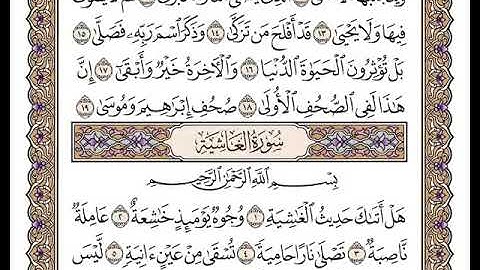 فِيهَا وَلَا يَحْيَىٰ ١٣ قَدْ أَفْلَحَ مَن تَزَكَّىٰ ١٤ وَذَكَرَ اسْمَ رَبِّهِ فَصَلَّىٰ ١٥
بَلْ تُؤْثِرُونَ الْحَيَوٰةَ الدُّنْيَا ١٦ وَالْآخِرَةُ خَيْرٌ وَأَبْقَىٰ ١٧ إِنَّ
هَٰذَا لَفِي الصُّحُفِ الْأُولَىٰ ١٨ صُحُفِ إِبْرَاهِيمَ وَمُوسَىٰ ١٩
سُورَةُ الغَاشِيَةِ
بِسْمِ اللَّهِ الرَّحْمَٰنِ الرَّحِيمِ
هَلْ أَتَىٰكَ حَدِيثُ الْغَٰشِيَةِ ١ وُجُوهٌ يَوْمَئِذٍ خَٰشِعَةٌ ٢ عَامِلَةٌ
نَّاصِبَةٌ ٣ تَصْلَىٰ نَارًا حَامِيَةً ٤ تُسْقَىٰ مِنْ عَيْنٍ ءَانِيَةٍ ٥ لَّيْسَ